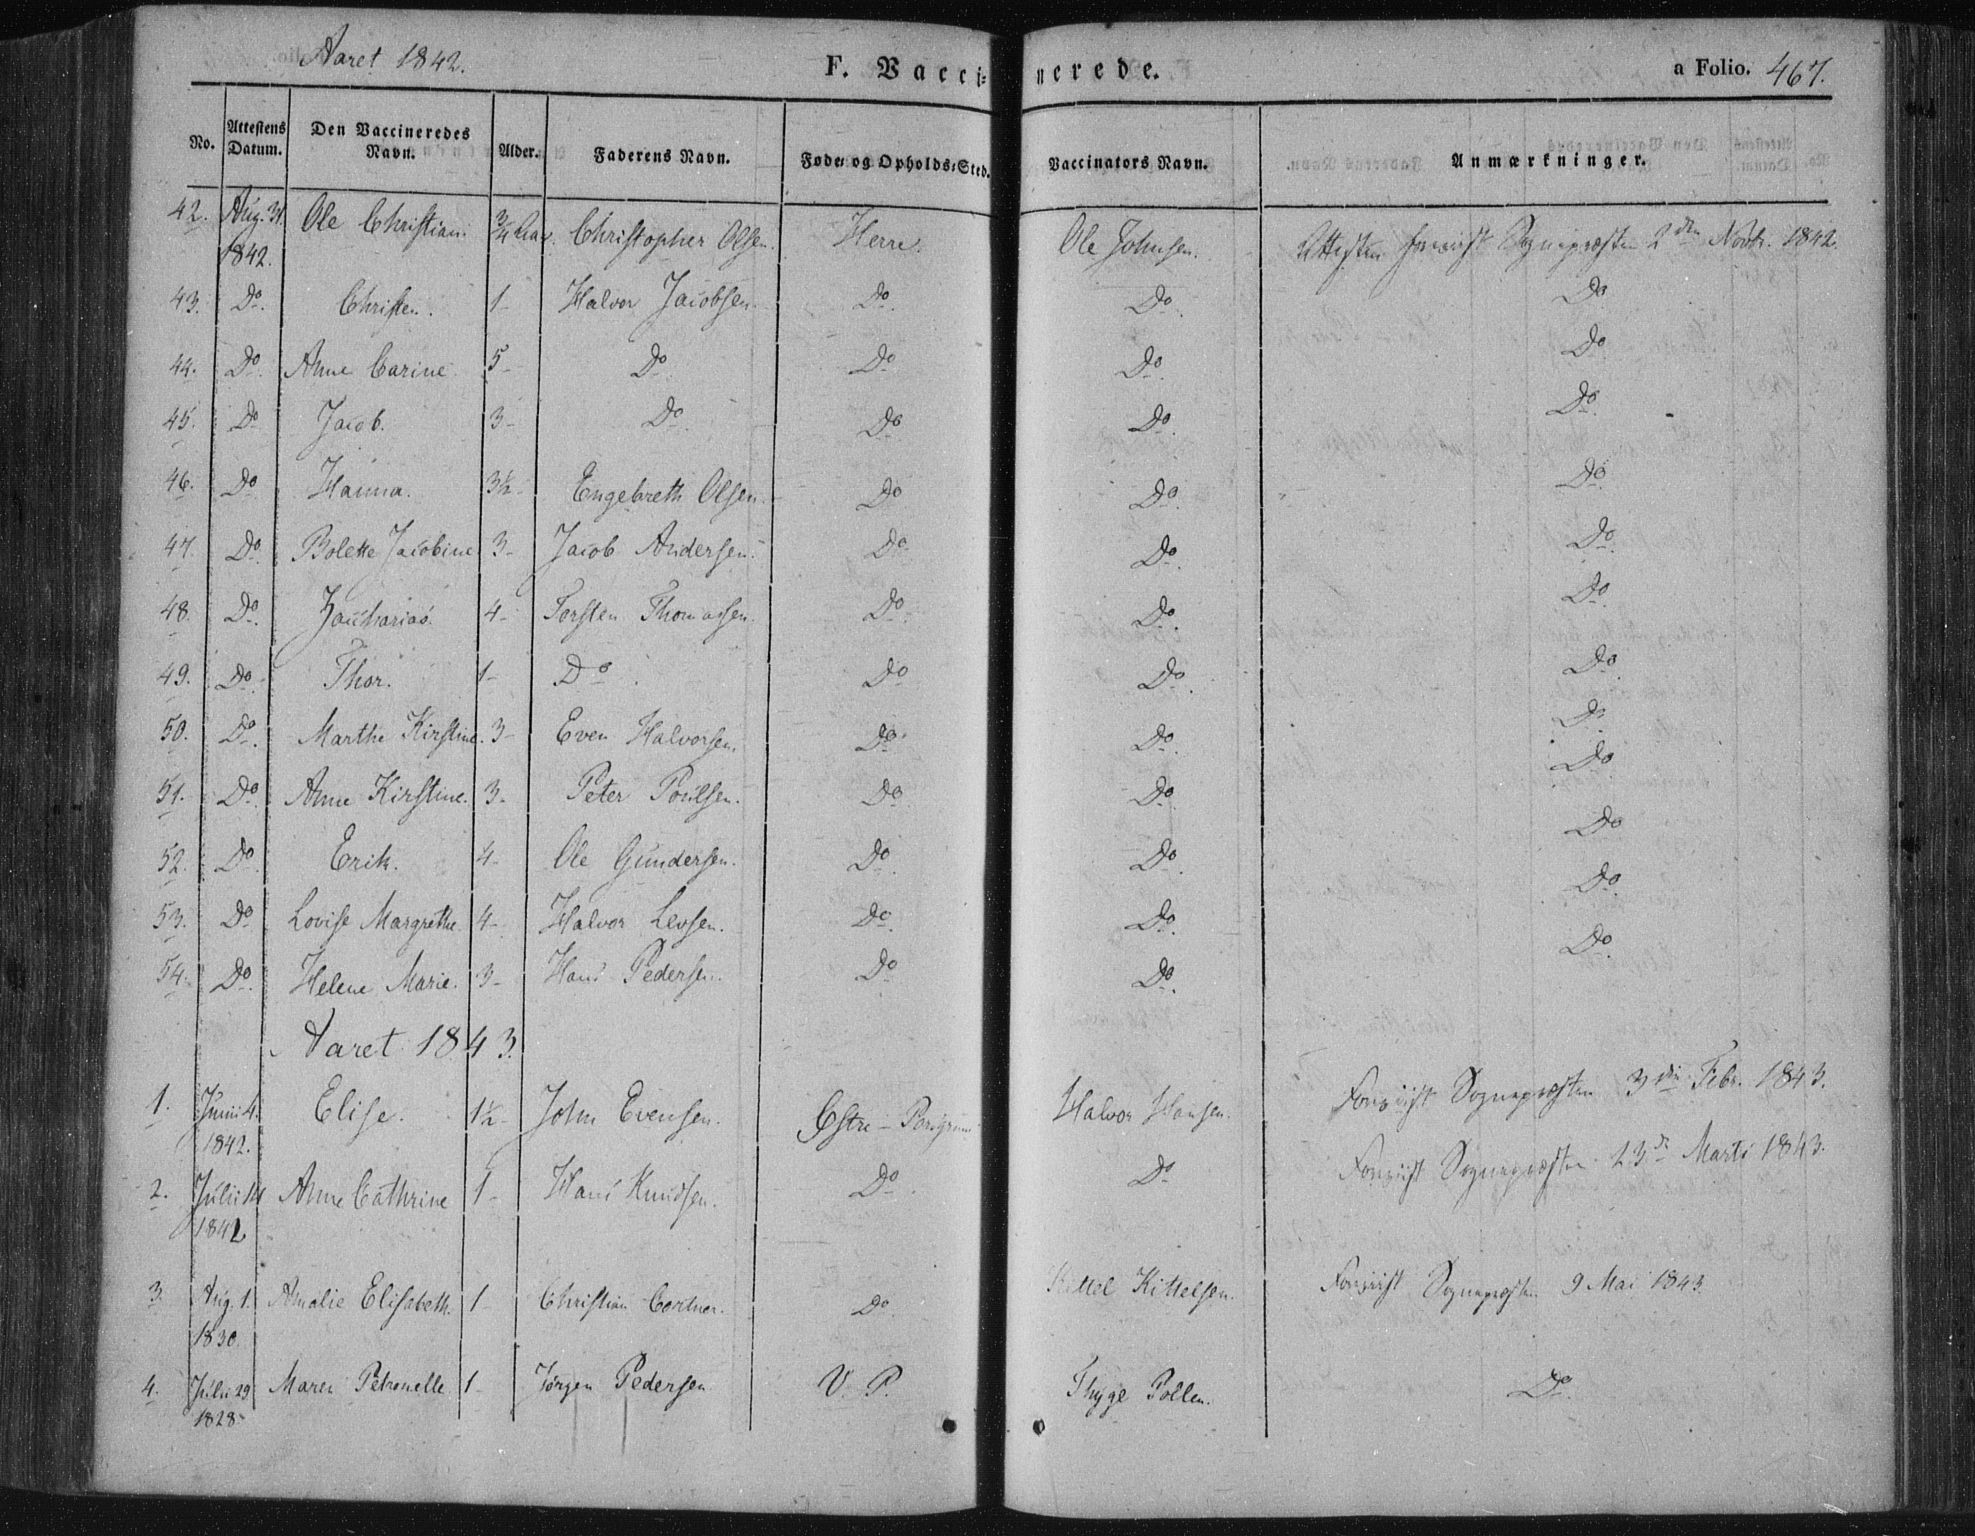 Aaret 1842. F. Vaccinerede. a Folio. 467.
No. Attestens Datum. Den Vaccineredes Navn. Alder. Faderens Navn. Føde- og Opholds-Sted. Vaccinators Navn. Anmærkninger.
42. Aug. 31 1842. Ole Christian 3/4 Aar. Christopher Olsen. Herre. Ole Johnsen. Attesten foreviist Sognepræsten 2den Novbr. 1842.
43. Do. Christen. 1- Halvor Jacobsen. Do. Do. Do
44. Do. Anne Carine 5- Do Do Do. Do
45. Do Jacob. 3- Do. Do Do. Do.
46. Do Hanna. 3½- Engebreth Olsen. Do Do. Do.
47. Do. Bolette Jacobine 3- Jacob Andersen. Do. Do. Do.
48. Do. Zacharias. 4- Torsten Thomassen. Do. Do. Do.
49. Do. Thor. 1- Do. Do Do. Do
50. Do. Marthe Kirstine. 3- Even Halvorsen. Do. Do. Do.
51. Do. Anne Kirstine. 3- Peter Poulsen. Do Do Do
52. Do. Erik. 4- Ole Gundersen. Do. Do. Do
53. Do Lovise Margrethe. 4- Halvor Levsen. Do. Do. Do.
54. Do. Helene Marie. 3- Hans Pedersen. Do Do. Do.
Aaret 1843.
1. Junii 4. 1842. Elise. 1½- John Evensen. Østre-Porsgrund Halvor Hansen. Foreviist Sognepræsten 3die Febr. 1843.
2. Julii 14 1842 Anne Cathrine 1- Hans Knudsen. Do. Do Foreviist Sognepræsten 23de Marts 1843.
3. Aug. 1. 1830. Amalie Elisabeth. 1- Christian Do. Kittel Kittelsen. Foreviist Sognepræsten 9 Mai 1843.
4. Julii 29 1828- Maren Petronelle 1- Jørgen Pedersen V. P. Thyge Pollen. Do.